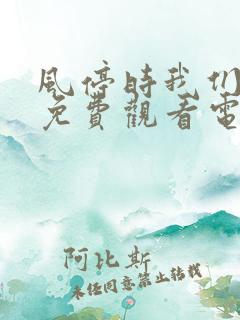 風停時我们
免費觀看電
阿比斯
未经同意禁止转载